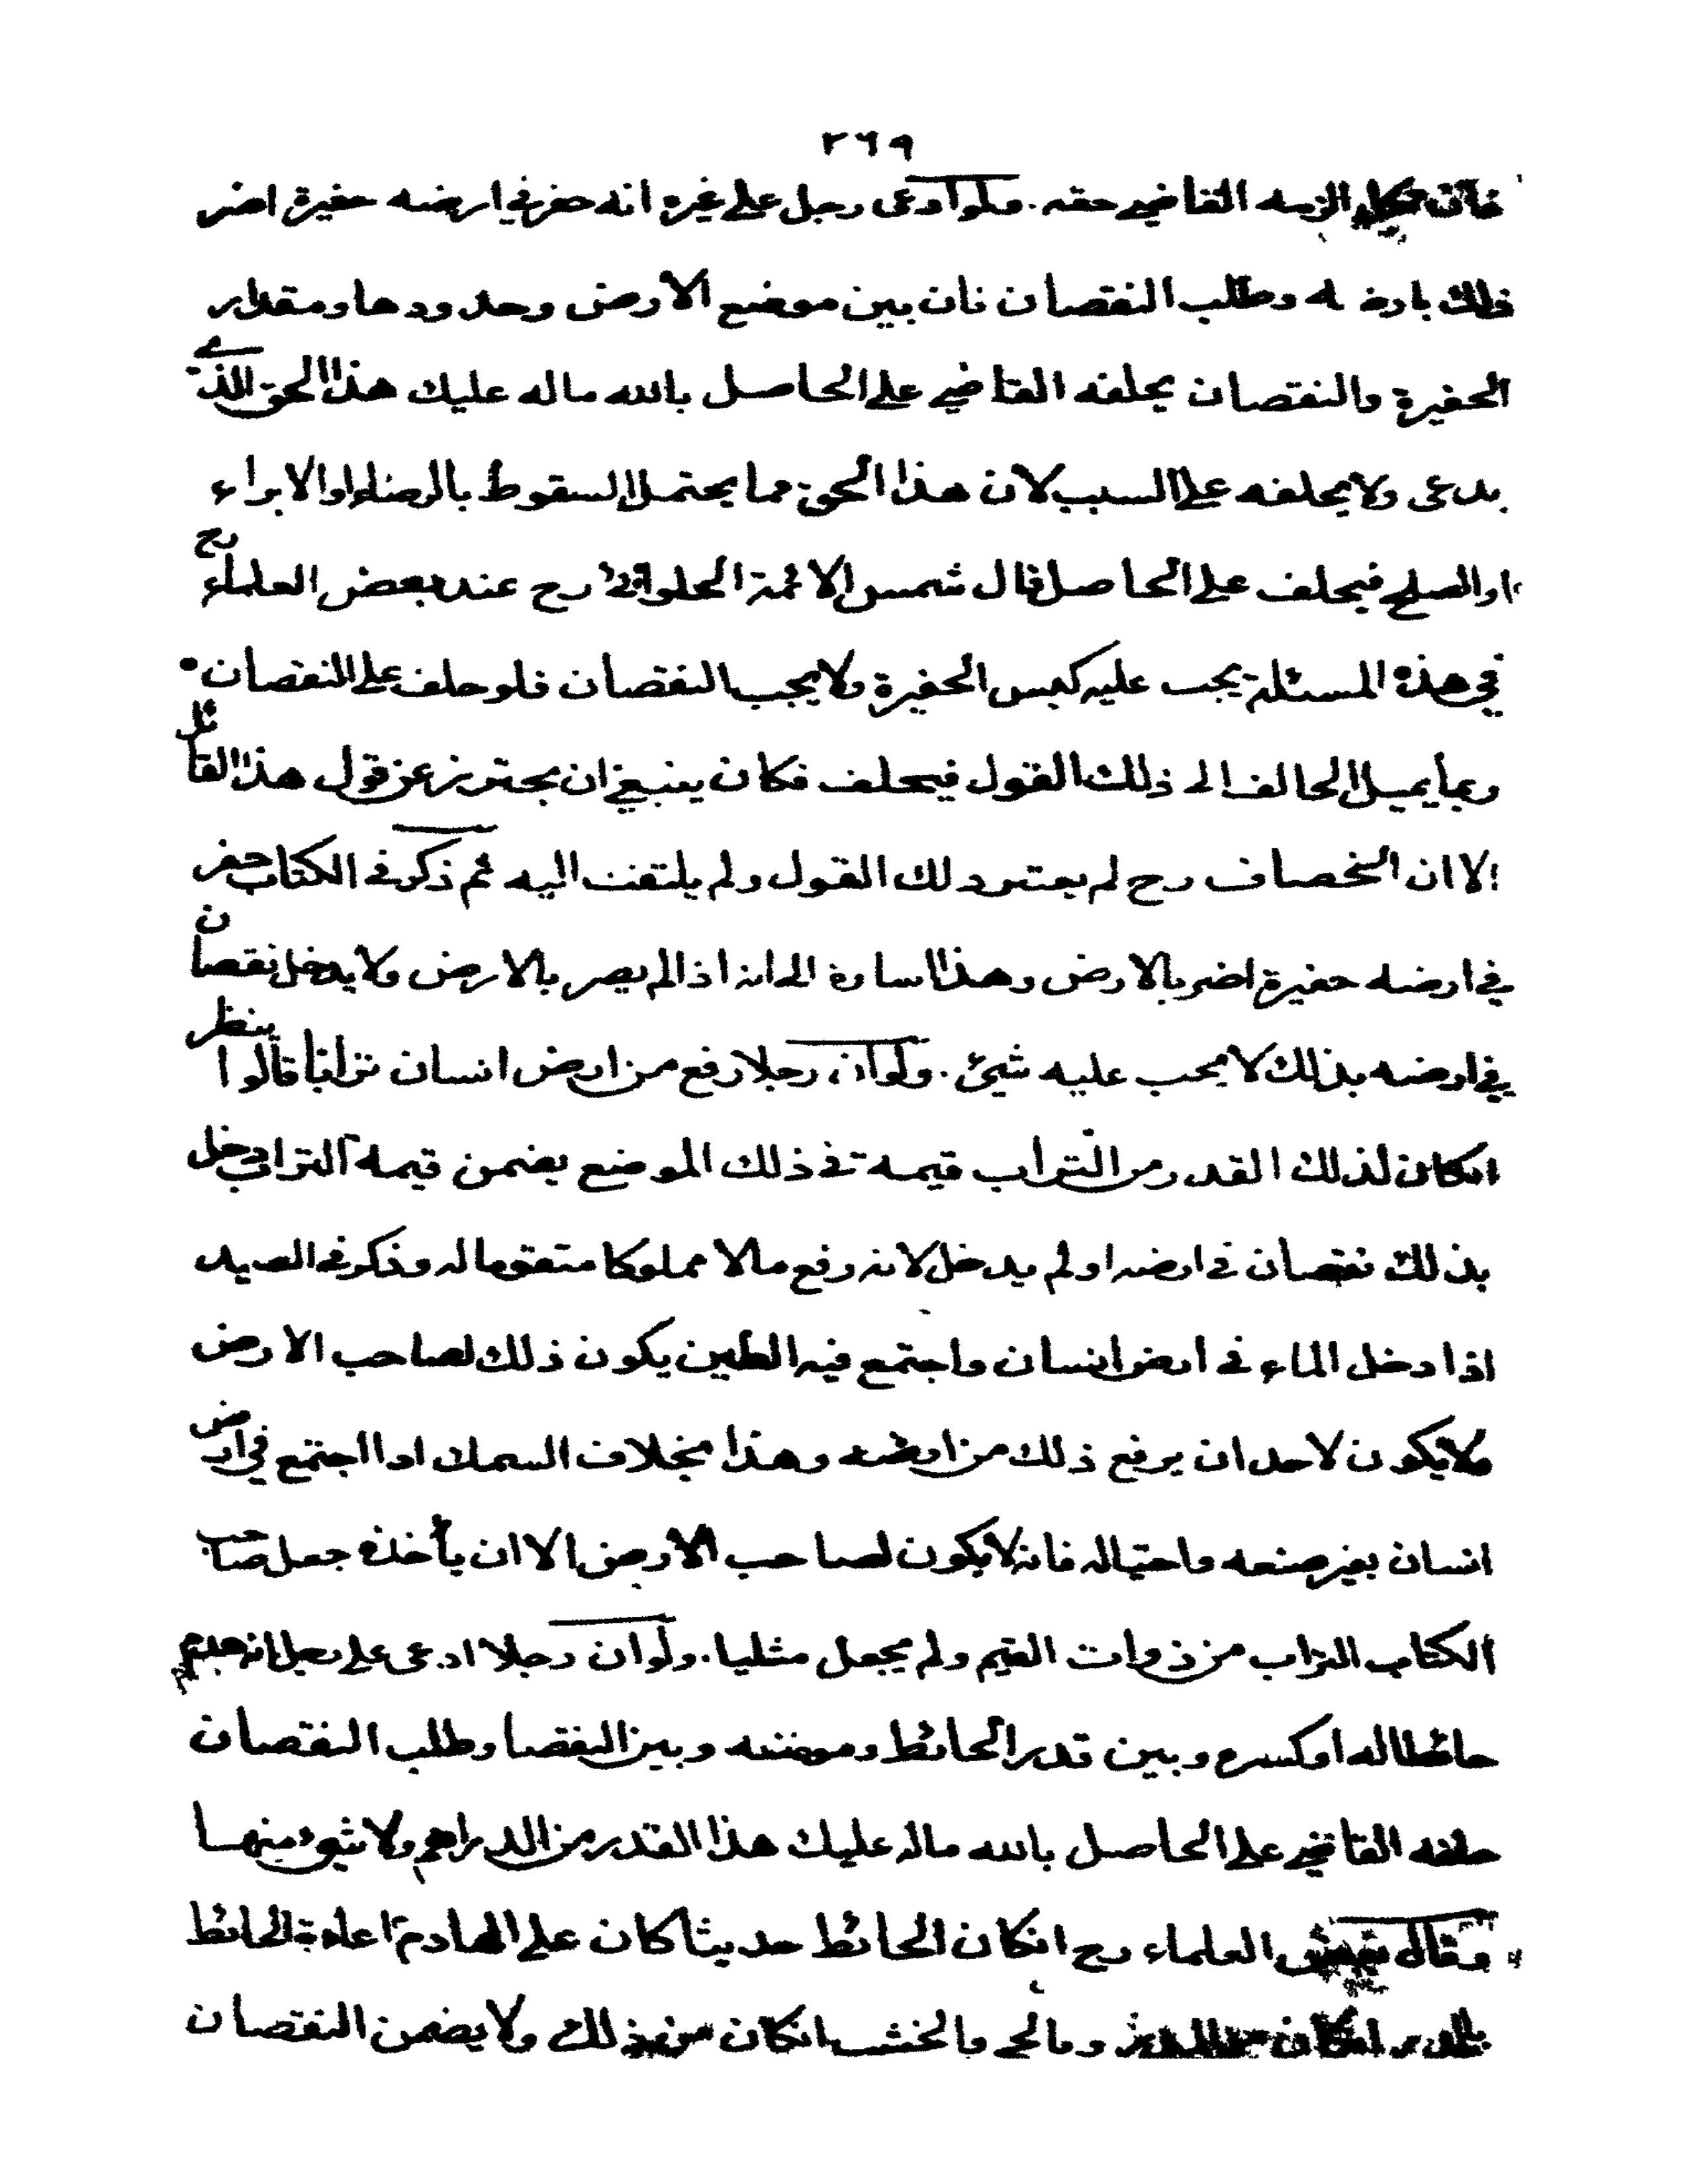 ٢٦٩
فان نكل الزمه القاضي حقه . ولو ادعى رجل على غيره انه حفر في ارضه حفيرة اضر
ذلك بارضه وطلب النقصان فان بين موضع الارض وحدودها ومقدار
الحفيرة والنقصان يحلفه القاضي على الحاصل بالله ماله عليك هذا الحق الذي
يدعى ولا يحلفه على السبب لان هذا الحق مما يحتمل السقوط بالرضاء او الابراء
او الصلح فيحلف على الحاصل قال شمس الائمة الحلوانى رح عند بعض العلماء رح
في هذه المسئلة يجب عليه كبس الحفيرة ولا يجب النقصان فلو حلف على النقصان
ربما يميل الحالف الى ذلك القول فيحلف فكان ينبغي ان يحترز عن قول هذا القائل
الا ان الخصاف رح لم يعتبر ذلك القول ولم يلتفت اليه ثم ذكر فى الكتاب حفر
في ارضه حفيرة اضر بالارض وهذا اشارة الى انه اذا لم يضر بالارض ولا يدخل نقصان
في ارضه بذلك لا يجب عليه شئ . ولو ان رجلا رفع من ارض انسان ترابا قالوا ينظر
انكان لذلك القدر من التراب قيمة فى ذلك الموضع يضمن قيمة التراب دخل
بذلك نقصان فى ارضه او لم يدخل لانه رفع مالا مملوكا متقوما له وذكر فى الصيد
اذا دخل الماء فى ارض انسان واجتمع فيه الطين يكون ذلك لصاحب الارض
ولا يكون لاحد ان يرفع ذلك من ارضه وهذا بخلاف السمك اذا اجتمع في ارض
انسان بغير صنعه واحتياله فانه لا يكون لصاحب الارض الا ان يأخذه جعل صاحب
الكتاب التراب من ذوات القيم ولم يجعل مثليا . ولو ان رجلا ادعى على رجل انه هدم
حائطا له او كسره وبين قدر الحائط وموضعه وبين النقصا وطلب النقصان
حلفه القاضي على الحاصل بالله ماله عليك هذا القدر من الدراهم ولا شئ منها
وقال بعض العلماء رح انكان الحائط حديثا كان على الهادم اعادة الحائط
بالمدر انكان من المدر وبالخشب انكان من ذلك ولا يضمن النقصان